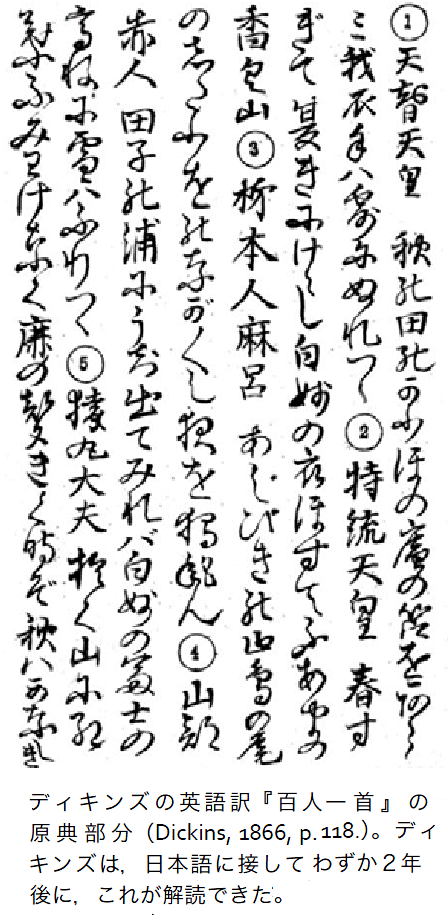 ①天智天皇　秋の田のかりほの庵の笘をあら
ミ我衣手ハ露にぬれつゝ②持統天皇　春す
ぎて夏きにけらし白妙の衣ほすてふあまの
香具山③柿本人麻呂　あしびきの山鳥の尾
のしだりをのなが〳〵し夜を獨かもねん④山部
赤人　田子の浦にうち出てみれバ白妙の冨士の
高ねに雪ハふりつゝ⑤猿丸大夫　おく山に紅
葉ふみわけなく鹿の聲きく時ぞ秋ハかなしき
ディキンズの英語訳『百人一首』の
原典部分（Dickins, 1866, p.118.）。ディ
キンズは，日本語に接してわずか２年
後に，これが解読できた。